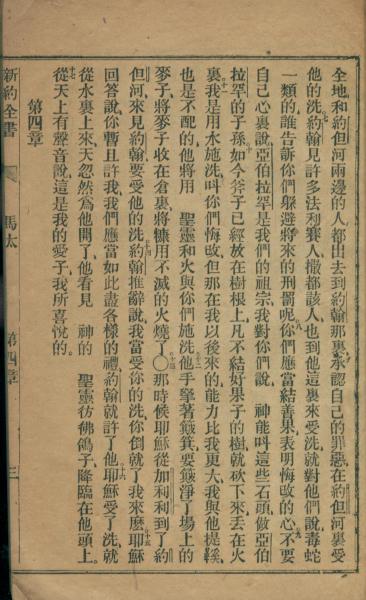 全地和約但河兩邊的人都出去到約翰那裏承認自己的罪惡在約但河裏受
他的洗約翰見許多法利賽人撒都該人也到他這裏來受洗就對他們說毒蛇
一類的誰告訴你們躲避將來的刑罰呢你們應當結善果表明悔改的心不要
自己心裏說亞伯拉罕是我們的祖宗我對你們說 神能叫這些石頭做亞伯
拉罕的子孫如今斧子已經放在樹根上凡不結好果子的樹就砍下來丟在火
裏我是用水施洗叫你們悔改但那在我以後來的能力比我更大我與他提鞋
也是不配的他將用 聖靈和火與你們施洗他手拏著簸箕要簸淨了場上的
麥子將麥子收在倉裏將糠用不滅的火燒了〇那時候耶穌從加利利到了約
但河來見約翰要受他的洗約翰推辭說我當受你的洗你倒就了我來麽耶穌
回答說你暫且許我我們應當如此盡各樣的禮約翰就許了他耶穌受了洗就
從水裏上來天忽然為他開了他看見 神的 聖靈彷彿鴿子降臨在他頭上
從天上有聲音說這是我的愛子我所喜悅的
第四章
新約全書 馬太 第四章 三